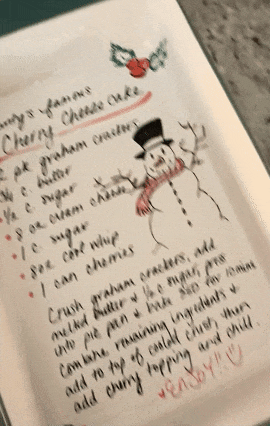 famous
Cherry Cheese Cake
2 pk graham crackers
c. butter
1/2 c. sugar
8 oz cream cheese
1 c. sugar
8 oz cool whip
1 can cherries
Crush graham crackers, add
melted butter & 1/2 c. sugar, press
into pie pan & bake 350 for 10 mins
Combine remaining ingredients &
add to top of cooled crust, then
add cherry topping and chill
enjoy!!